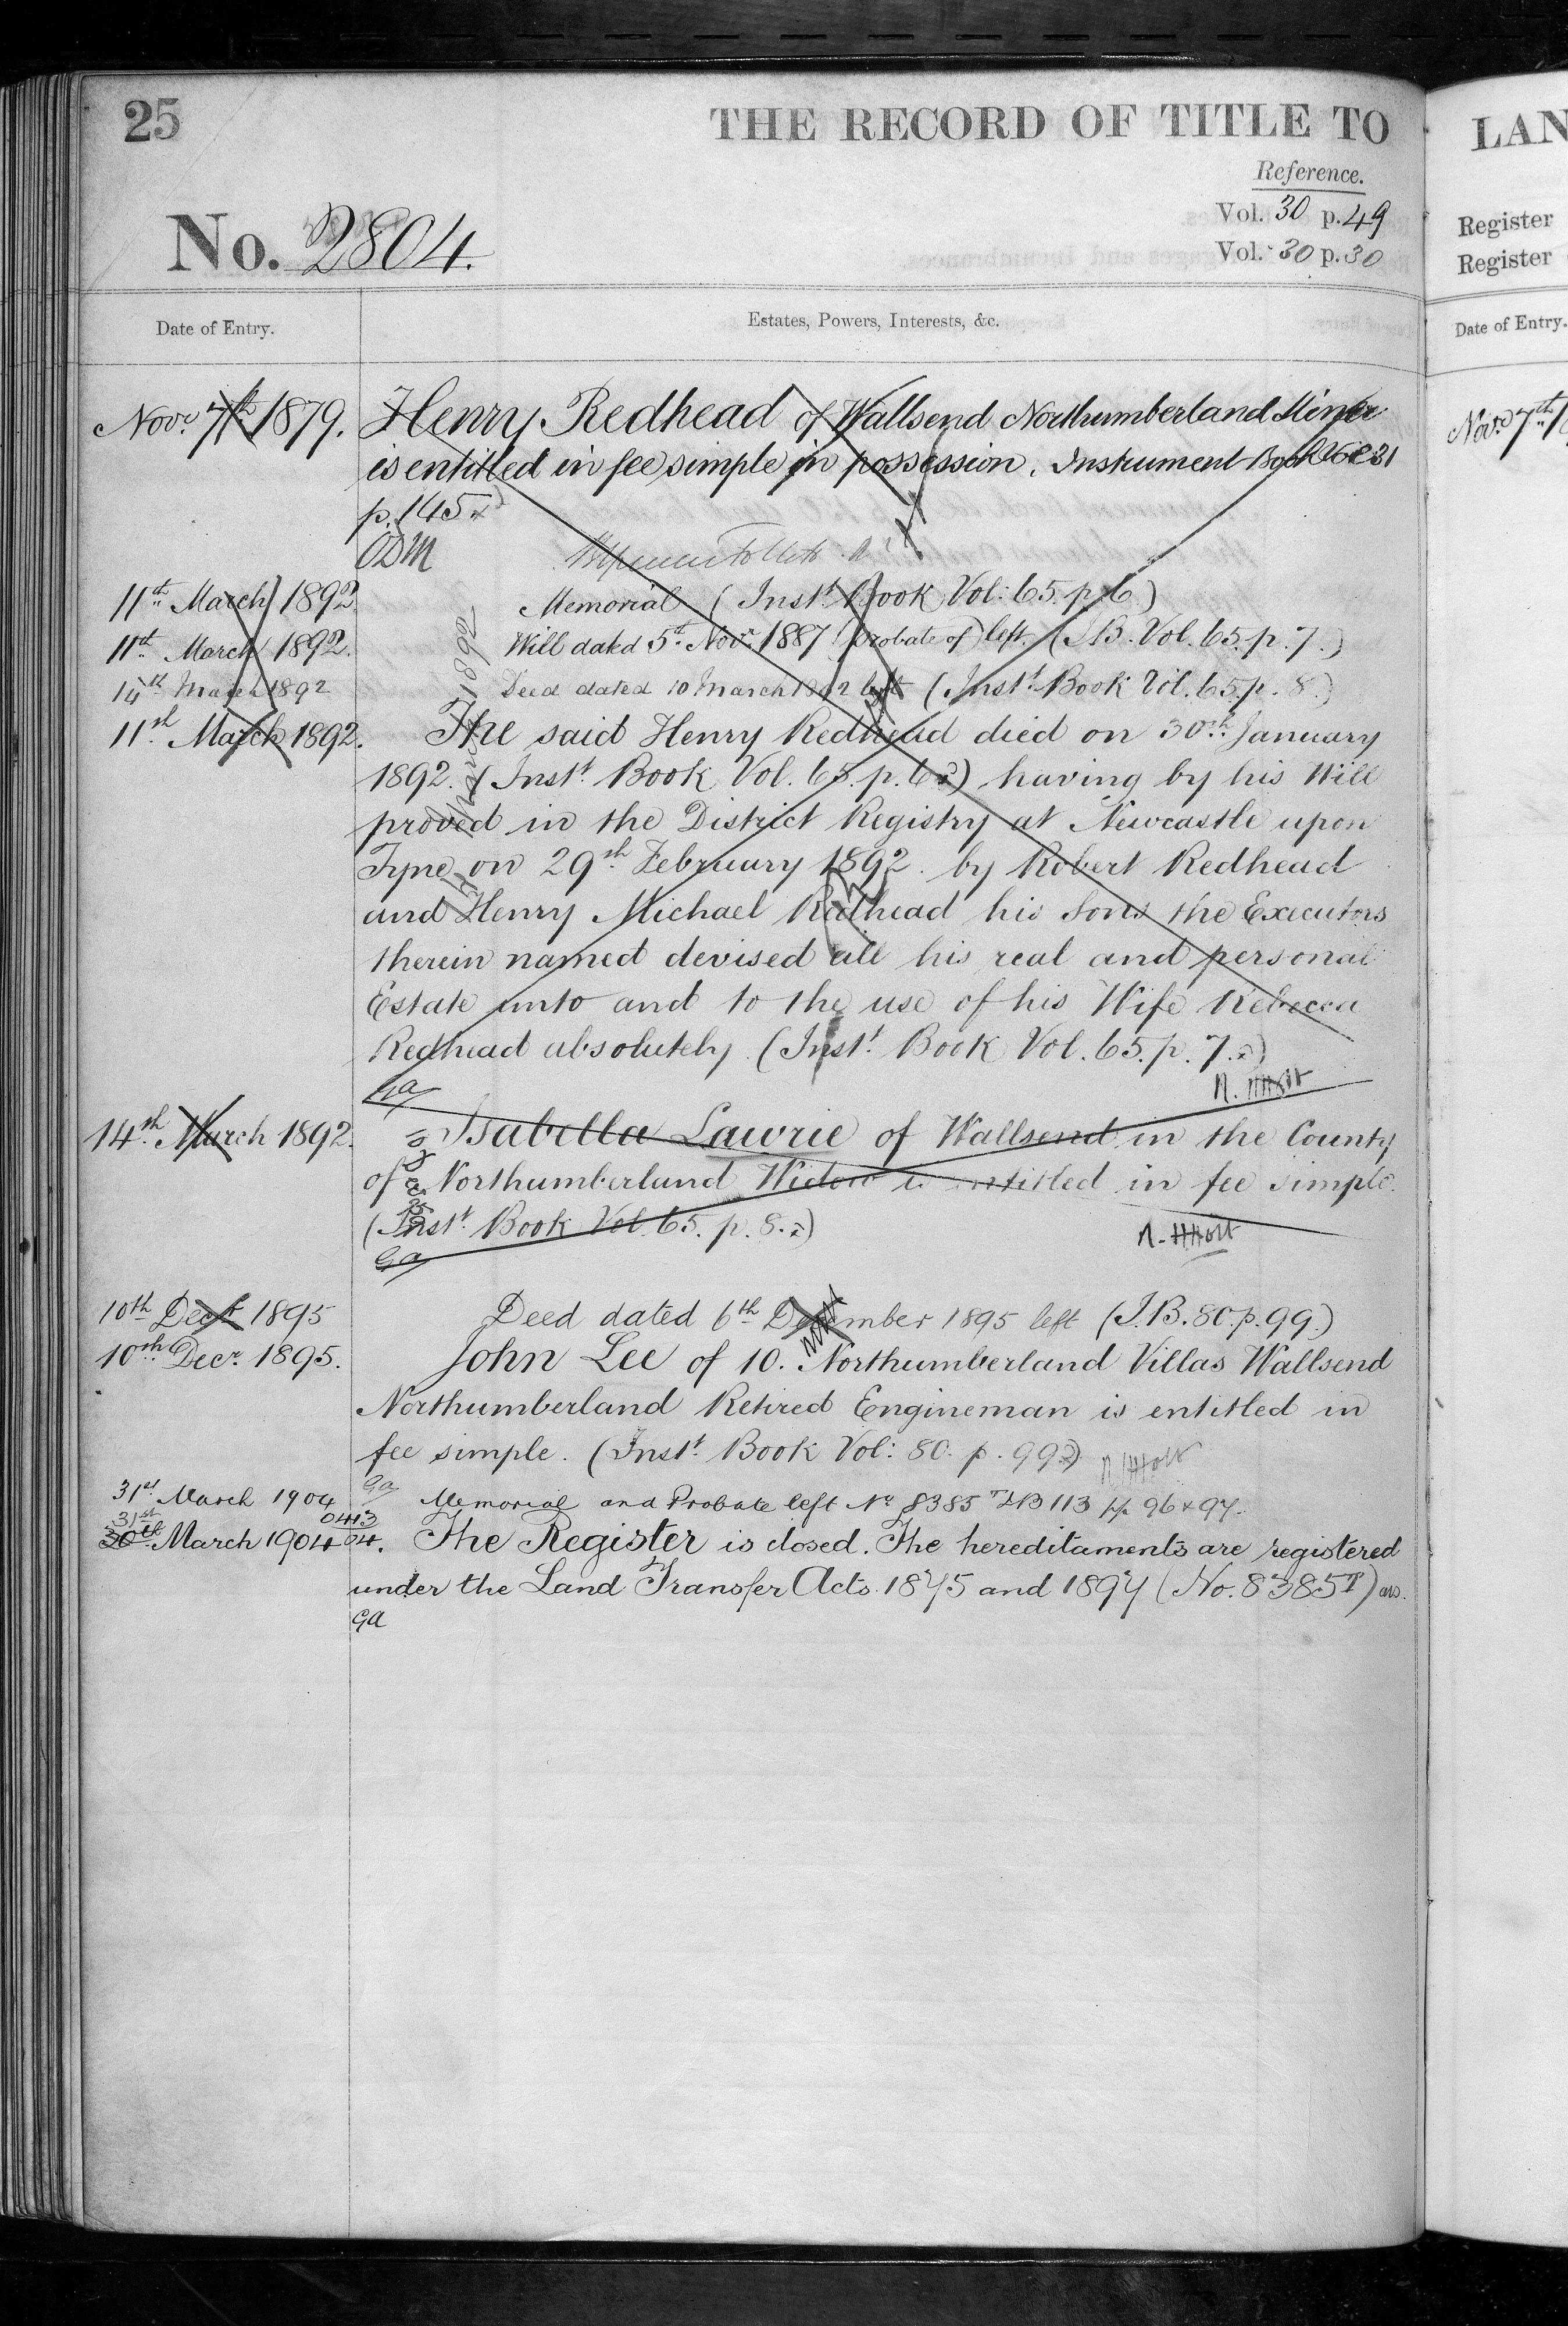 25
THE RECORD OF TITLE TO
Reference.
Vol. 30 p. 49
No. 2804.
Vol. 30 p. 30
Date of Entry.
Estates, Powers, Interests, &c.
Novr. 7th 1879. Henry Redhead of Wallsend Northumberland Miner
is entitled in fee simple in possession. Instrument Book Vol 31
p. 145
ODM
11th March 1892. Memorial (Instt. Book Vol: 65. p. 6)
11th March 1892. Will dated 5th Novr. 1887 (Probate of) left. (I.B. Vol. 65. p. 7.)
14th March 1892 Deed dated 10 March 1892 left (Instt. Book Vol. 65. p. 8.)
11th March 1892. The said Henry Redhead died on 30th January
1892. (Instt. Book Vol. 65. p. 6) having by his Will
proved in the District Registry at Newcastle upon
Tyne on 29th February 1892 by Robert Redhead
and Henry Michael Redhead his Sons the Executors
therein named devised all his real and personal
Estate unto and to the use of his Wife Rebecca
Redhead absolutely. (Instt. Book Vol. 65. p. 7.)
Ga
14th March 1892. Isabella Lawrie of Wallsend in the County
of Northumberland Widow is entitled in fee simple.
(Instt. Book Vol. 65. p. 8.)
Ga
10th Decr 1895 Deed dated 6th December 1895 left (I.B. 80. p. 99.)
10th Decr. 1895. John Lee of 10. Northumberland Villas Wallsend
Northumberland Retired Engineman is entitled in
fee simple. (Instt. Book Vol: 80. p. 99)
Ga
31st March 1904 Memorial and Probate left No 8385 IB 113 pp. 96 & 97.
31st
0413
30th March 1904 04. The Register is closed. The hereditaments are registered
under the Land Transfer Acts 1875 and 1897 (No. 8385)
Ga
LAN
Register
Register
Date of Entry.
Novr. 7th